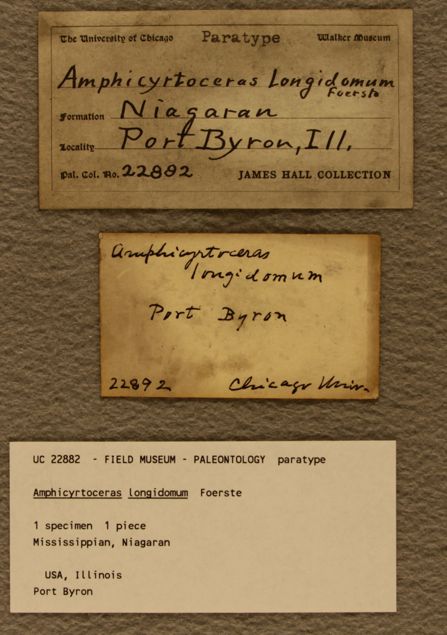 The University of Chicago Paratype Walker Museum
Amphicyrtoceras Longidomum
Foerste
Formation Niagaran
Locality Port Byron, Ill.
Pal. Col. No. 22882 JAMES HALL COLLECTION
Amphicyrtoceras
longidomum
Port Byron
22892 Chicago Univ.
UC 22882 - FIELD MUSEUM - PALEONTOLOGY paratype
Amphicyrtoceras longidomum Foerste
1 specimen 1 piece
Mississippian, Niagaran
USA, Illinois
Port Byron